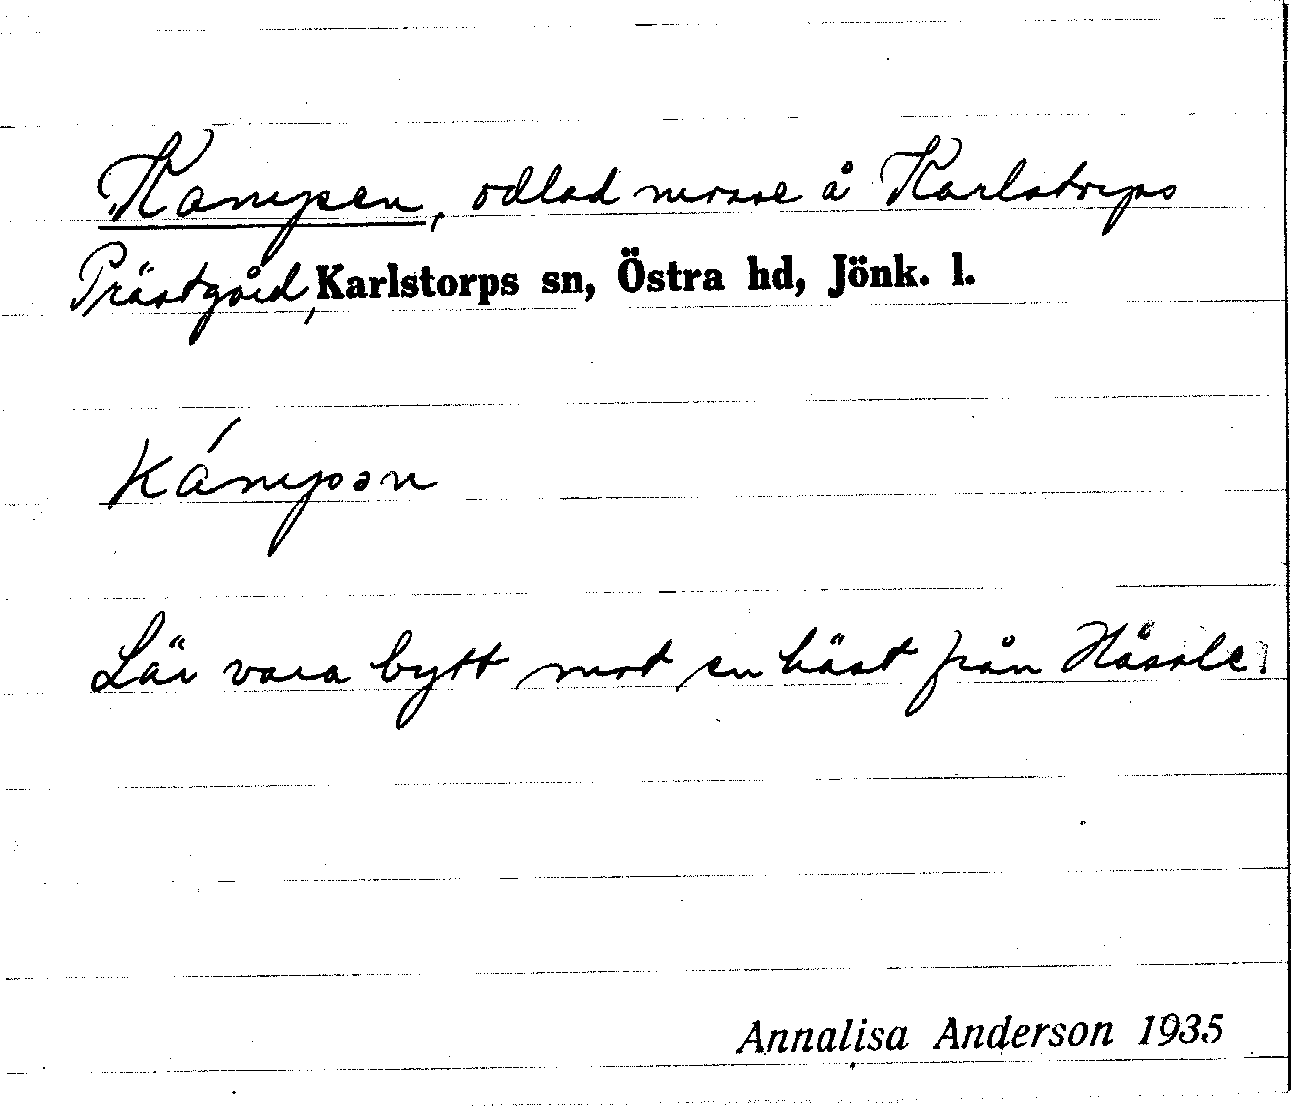 Kampen, odlad mosse å Karlstorps
Prästgård, Karlstorps sn, Östra hd, Jönk. l.
kámpən
Lär vara bytt mot en häst från Håssle.
Annalisa Anderson 1935